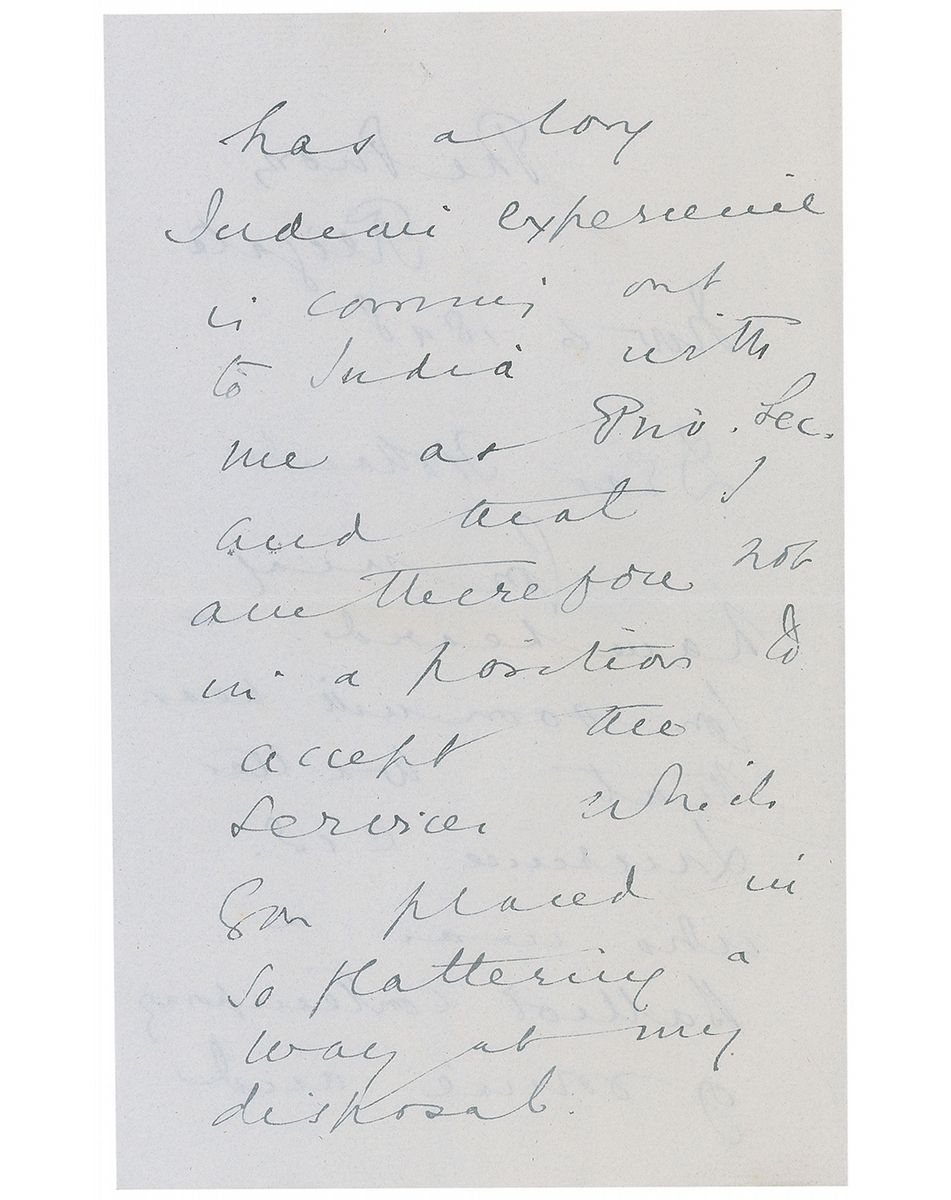 has a long
Indian experience
is coming out
to India with
me as Priv. Sec.
and that I
am therefore not
in a position to
accept the
services which
you placed in
so flattering a
way at my
disposal.